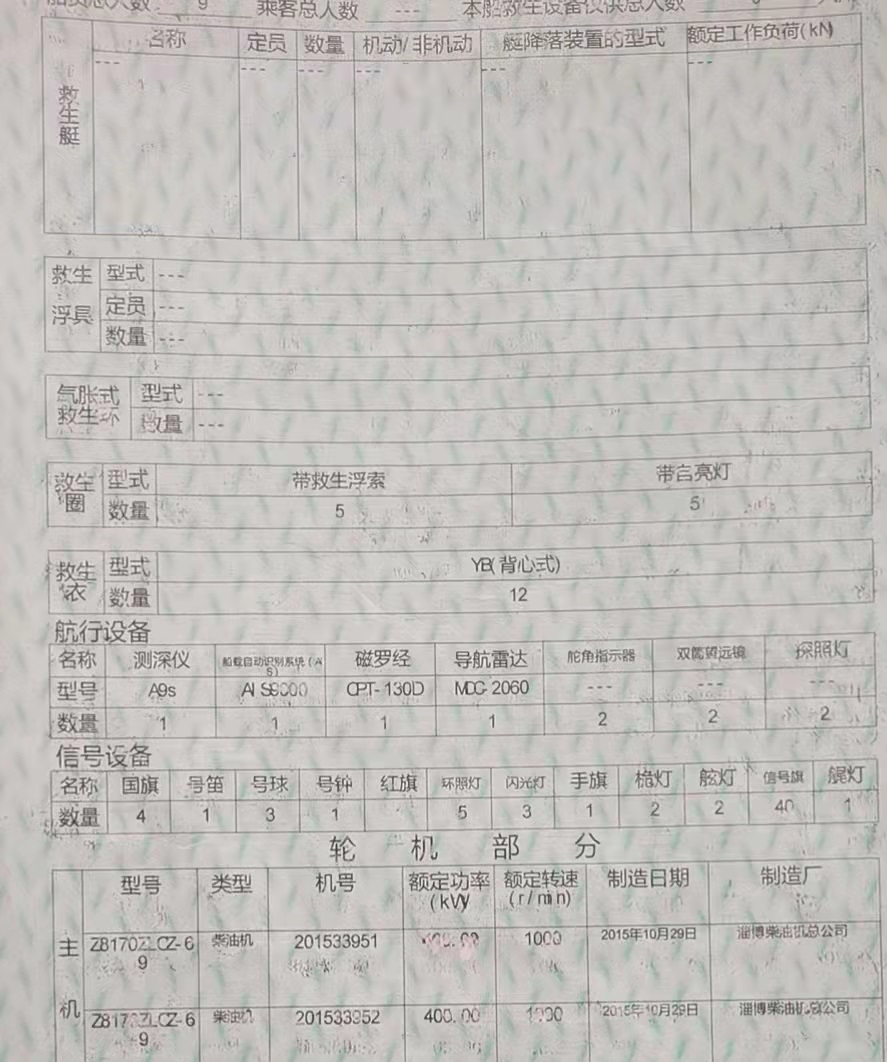 船员总人数 9 乘客总人数 --- 本船救生设备仅供总人数
名称 定员 数量 机动/非机动 艇降落装置的型式 额定工作负荷(kN)
救生艇 --- --- --- --- --- ---
救生浮具 型式 ---
定员 ---
数量 ---
气胀式救生环 型式 ---
数量 ---
救生圈 型式 带救生浮索 带自亮灯
数量 5 5
救生衣 型式 YB(背心式)
数量 12
航行设备
名称 测深仪 船载自动识别系统(AIS) 磁罗经 导航雷达 舵角指示器 双筒望远镜 探照灯
型号 A9s AIS9000 CPT-130D MDC-2060 --- --- ---
数量 1 1 1 1 2 2 2
信号设备
名称 国旗 号笛 号球 号钟 红旗 环照灯 闪光灯 手旗 桅灯 舷灯 信号旗 艉灯
数量 4 1 3 1 5 3 1 2 2 40 1
轮机部分
型号 类型 机号 额定功率(kW) 额定转速(r/min) 制造日期 制造厂
主机 Z8170ZLCZ-69 柴油机 201533951 1000 2015年10月29日 淄博柴油机总公司
Z8170ZLCZ-69 柴油机 201533952 400.00 1000 2015年10月29日 淄博柴油机总公司